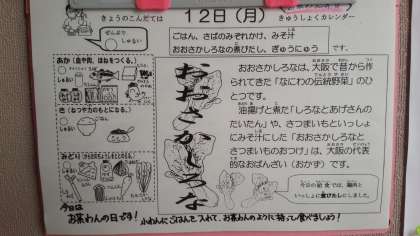 きょうのこんだては
12日(月)
きゅうしょくカレンダー
ぜんぶで
しゅるい
ごはん、さばのみぞれかけ、みそ汁
おおさかしろなの煮びたし、ぎゅうにゅう です。
あか(血や肉、ほねをつくる。)
しゅるい
き(ねつや力のもとになる。)
しゅるい
みどり(からだのちょうしをととのえる。)
しゅるい
おおさかしろな
おおさかしろなは、大阪で昔から作
られてきた「なにわの伝統野菜」のひ
とつです。
油揚げと煮た「しろなとあげさんの
たいたん」や、さつまいもといっしょ
にみそ汁にした「おおさかしろなと
さつまいものおつけ」は、大阪の代表
的なおばんざい(おかず)です。
今日の給食では、鶏肉と
いっしょに煮びたしにしました。
今日は
お茶わんの日です!
小わんにごはんを入れて、お茶わんのように持って食べましょう!